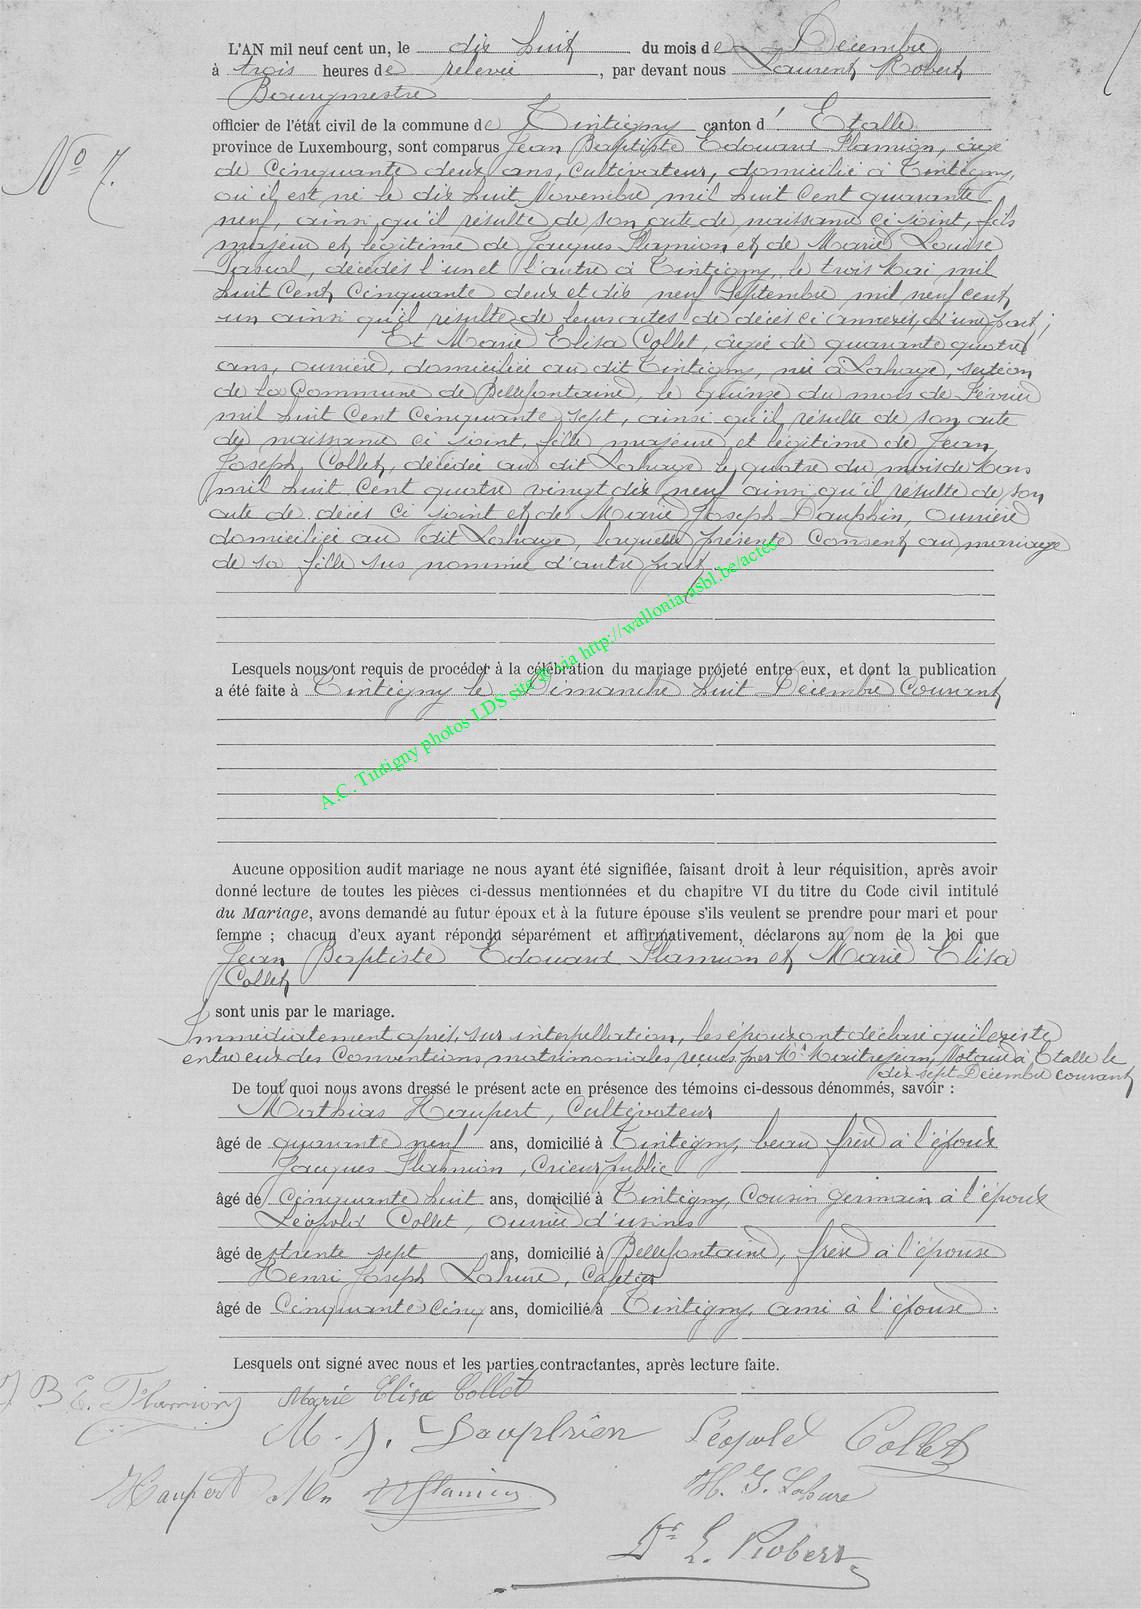 L'AN mil neuf cent un, le dix huit du mois de Décembre
à trois heures de relevée, par devant nous Laurent Robert
Bourgmestre
officier de l'état civil de la commune de Tintigny canton d' Etalle
province de Luxembourg, sont comparus Jean Baptiste Edouard Flamion, âgé
N° 7.
de Cinquante deux ans, Cultivateur, domicilié à Tintigny,
où il est né le dix huit Novembre mil huit Cent quarante
neuf, ainsi qu'il résulte de son acte de naissance ci joint, fils
majeur et légitime de Jacques Flamion et de Marie Louise
Pascal, décédés l'un et l'autre à Tintigny, le trois Mai mil
huit Cent Cinquante deux et dix neuf Septembre mil neuf cent
un ainsi qu'il résulte de leurs actes de décès ci annexés, d'une part;
Et Marie Elisa Collet, âgée de quarante quatre
ans, ouvrière, domiciliée au dit Tintigny, née à Lahage, section
de la Commune de Bellefontaine, le quinze du mois de Février
mil huit Cent Cinquante sept, ainsi qu'il résulte de son acte
de naissance ci joint, fille majeure et légitime de Jean
Joseph Collet, décédée au dit Lahage le quatre du mois de Mars
mil huit Cent quatre vingt dix neuf ainsi qu'il résulte de son
acte de décès ci joint et de Marie Joseph Dauphin, Ouvrière
domiciliée au dit Lahage, laquelle présente Consent au mariage
de sa fille sus nommée d'autre part.
A.C. Tintigny photos LDS site @ via http://wallonia-asbl.be/actes
Lesquels nous ont requis de procéder à la célébration du mariage projeté entre eux, et dont la publication
a été faite à Tintigny le Dimanche huit Décembre Courant
Aucune opposition audit mariage ne nous ayant été signifiée, faisant droit à leur réquisition, après avoir
donné lecture de toutes les pièces ci-dessus mentionnées et du chapitre VI du titre du Code civil intitulé
du Mariage, avons demandé au futur époux et à la future épouse s'ils veulent se prendre pour mari et pour
femme ; chacun d'eux ayant répondu séparément et affirmativement, déclarons au nom de la loi que
Jean Baptiste Edouard Flamion et Marie Elisa
Collet
sont unis par le mariage.
Immédiatement après, sur interpellation, les époux ont déclaré qu'il existe
entre eux des Conventions matrimoniales reçues par Mr Notaire à Etalle le
dix sept Décembre courant
De tout quoi nous avons dressé le présent acte en présence des témoins ci-dessous dénommés, savoir :
Mathias Haupert, Cultivateur
âgé de quarante neuf ans, domicilié à Tintigny, beau frère à l'époux
Jacques Flamion, Crieur public
âgé de Cinquante huit ans, domicilié à Tintigny, Cousin germain à l'époux
Léopold Collet, ouvrier d'usines
âgé de trente sept ans, domicilié à Bellefontaine, frère à l'épouse
Henri Joseph Lahure, Cafetier
âgé de Cinquante Cinq ans, domicilié à Tintigny, ami à l'épouse.
Lesquels ont signé avec nous et les parties contractantes, après lecture faite.
J B E. Flamion Marie Elisa Collet
M. J. Dauphien Léopold Collet
Haupert Mn Flamion H. J. Lahure
Dr L. Robert